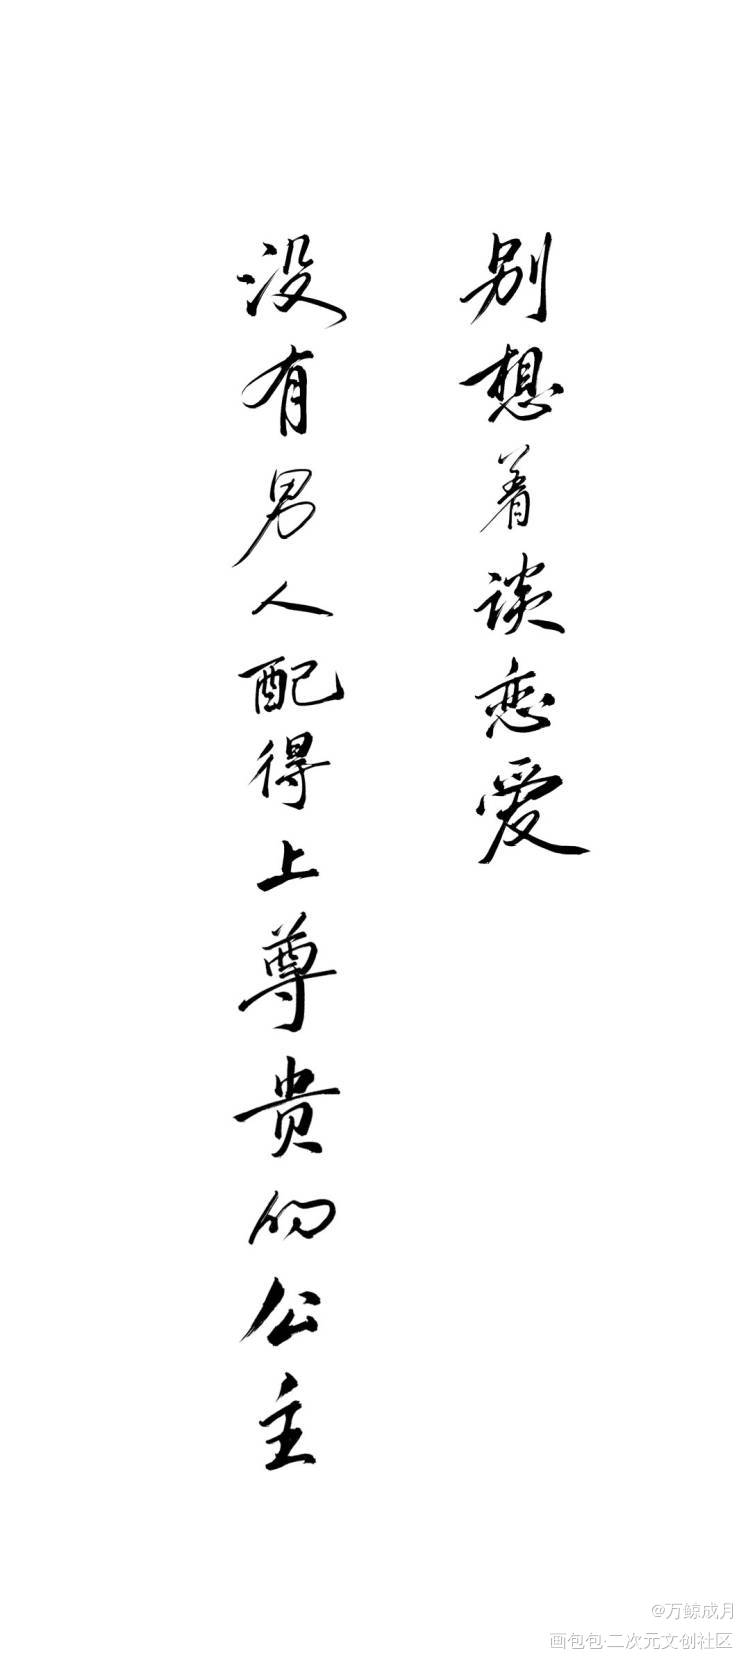 别想着谈恋爱
没有男人配得上尊贵的公主
@万鲸成月
画包包·二次元文创社区